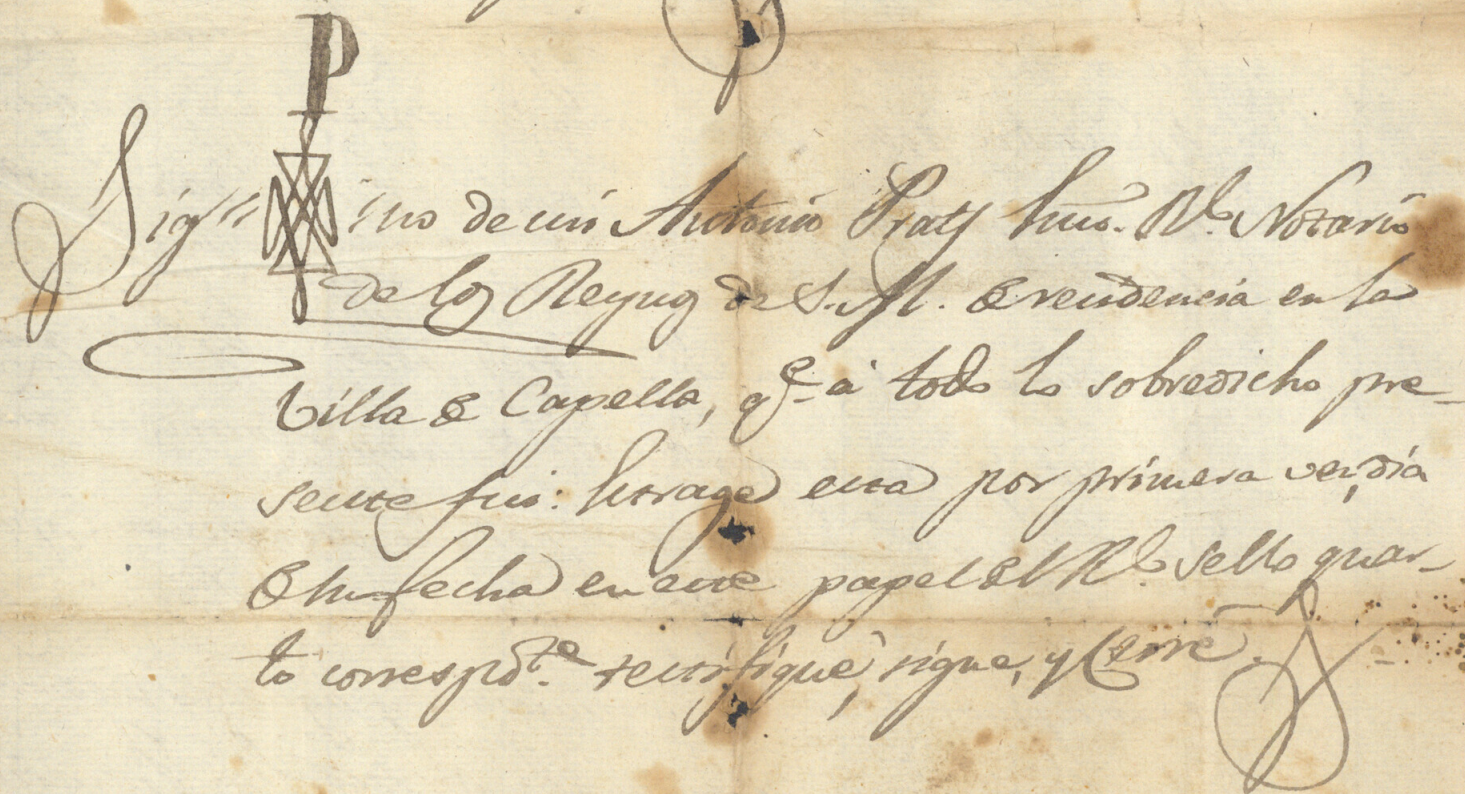 P
Sig no de mi Antonio Prats Esno. Rl. Notario
de los Reynos de S. M. de residencia en la
Villa de Capella, qe. a todo lo sobredicho pre-
sente fui: Extrage esta por primera vez, dia
de su fecha en este papel del Rl. sello quar-
to correspdte. testifiqué, signe, y Cerré